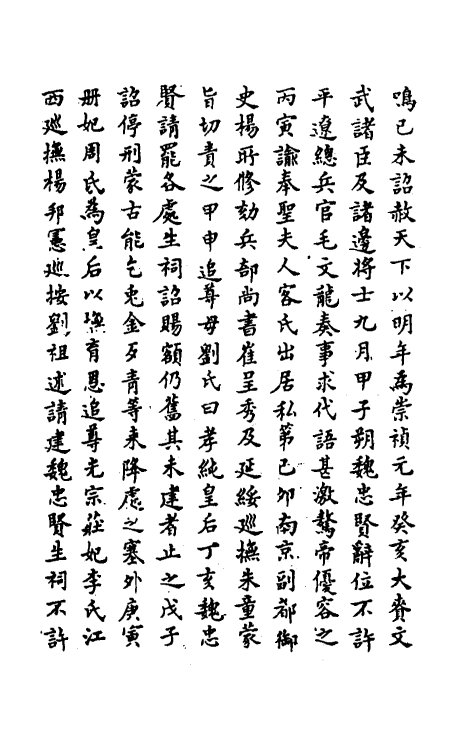 鳴己未詔赦天下以明年爲崇禎元年癸亥大賚文
武諸臣及諸邊將士九月甲子朔魏忠賢辭位不許
平遼總兵官毛文龍奏事求代語甚激驁帝優容之
丙寅諭奉聖夫人客氏出居私第己卯南京副都御
史楊所修劾兵部尚書崔呈秀及延綏巡撫朱童蒙
旨切責之甲申追尊母劉氏曰孝純皇后丁亥魏忠
賢請罷各處生祠詔賜額仍舊其未建者止之戊子
詔停刑蒙古能乞兎金歹青等來降處之塞外庚寅
册妃周氏爲皇后以撫育恩追尊光宗莊妃李氏江
西巡撫楊邦憲巡按劉祖述請建魏忠賢生祠不許